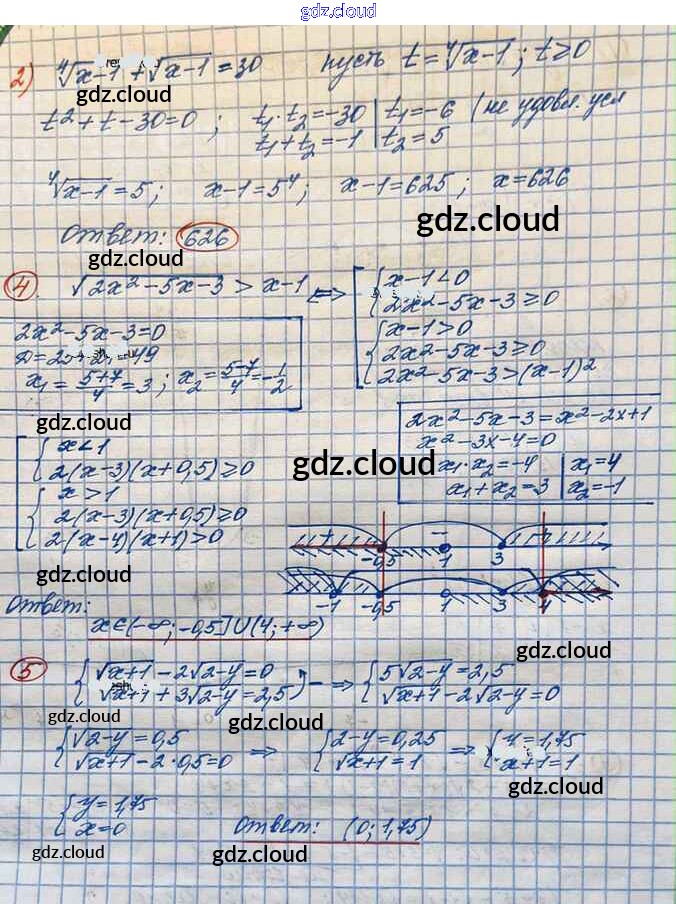 gdz.cloud
2) ⁴√x-1 + √x-1 = 30 пусть t = ⁴√x-1; t ≥ 0
gdz.cloud
t² + t - 30 = 0; t₁·t₂ = -30 | t₁ = -6 (не удовл. усл
t₁ + t₂ = -1 | t₂ = 5
⁴√x-1 = 5; x-1 = 5⁴; x-1 = 625; x = 626
gdz.cloud
Ответ: 626
gdz.cloud
4. √2x² - 5x - 3 > x - 1 <=> [ { x - 1 < 0
2x² - 5x - 3 ≥ 0
{ x - 1 > 0
2x² - 5x - 3 ≥ 0
2x² - 5x - 3 > (x - 1)²
2x² - 5x - 3 = 0
= 49
x₁ = 5+7/4 = 3; x₂ = 5-7/4 = -1/2
gdz.cloud
2x² - 5x - 3 = x² - 2x + 1
x² - 3x - 4 = 0
x₁·x₂ = -4 | x₁ = 4
x₁ + x₂ = 3 | x₂ = -1
[ { x < 1
2(x-3)(x+0,5) ≥ 0
gdz.cloud
{ x > 1
2(x-3)(x+0,5) ≥ 0
2(x-4)(x+1) > 0
+ - +
-0,5 1 3
gdz.cloud
-1 -0,5 1 3 4
Ответ:
x ∈ (-∞; -0,5] ∪ (4; +∞)
gdz.cloud
5 { √x+1 - 2√2-y = 0
√x+1 + 3√2-y = 2,5 ) - => { 5√2-y = 2,5
√x+1 - 2√2-y = 0
gdz.cloud
gdz.cloud
{ √2-y = 0,5
√x+1 - 2·0,5 = 0 => { 2-y = 0,25
√x+1 = 1 => { y = 1,75
x+1 = 1
gdz.cloud
gdz.cloud
{ y = 1,75
x = 0
Ответ: (0; 1,75)
gdz.cloud
gdz.cloud